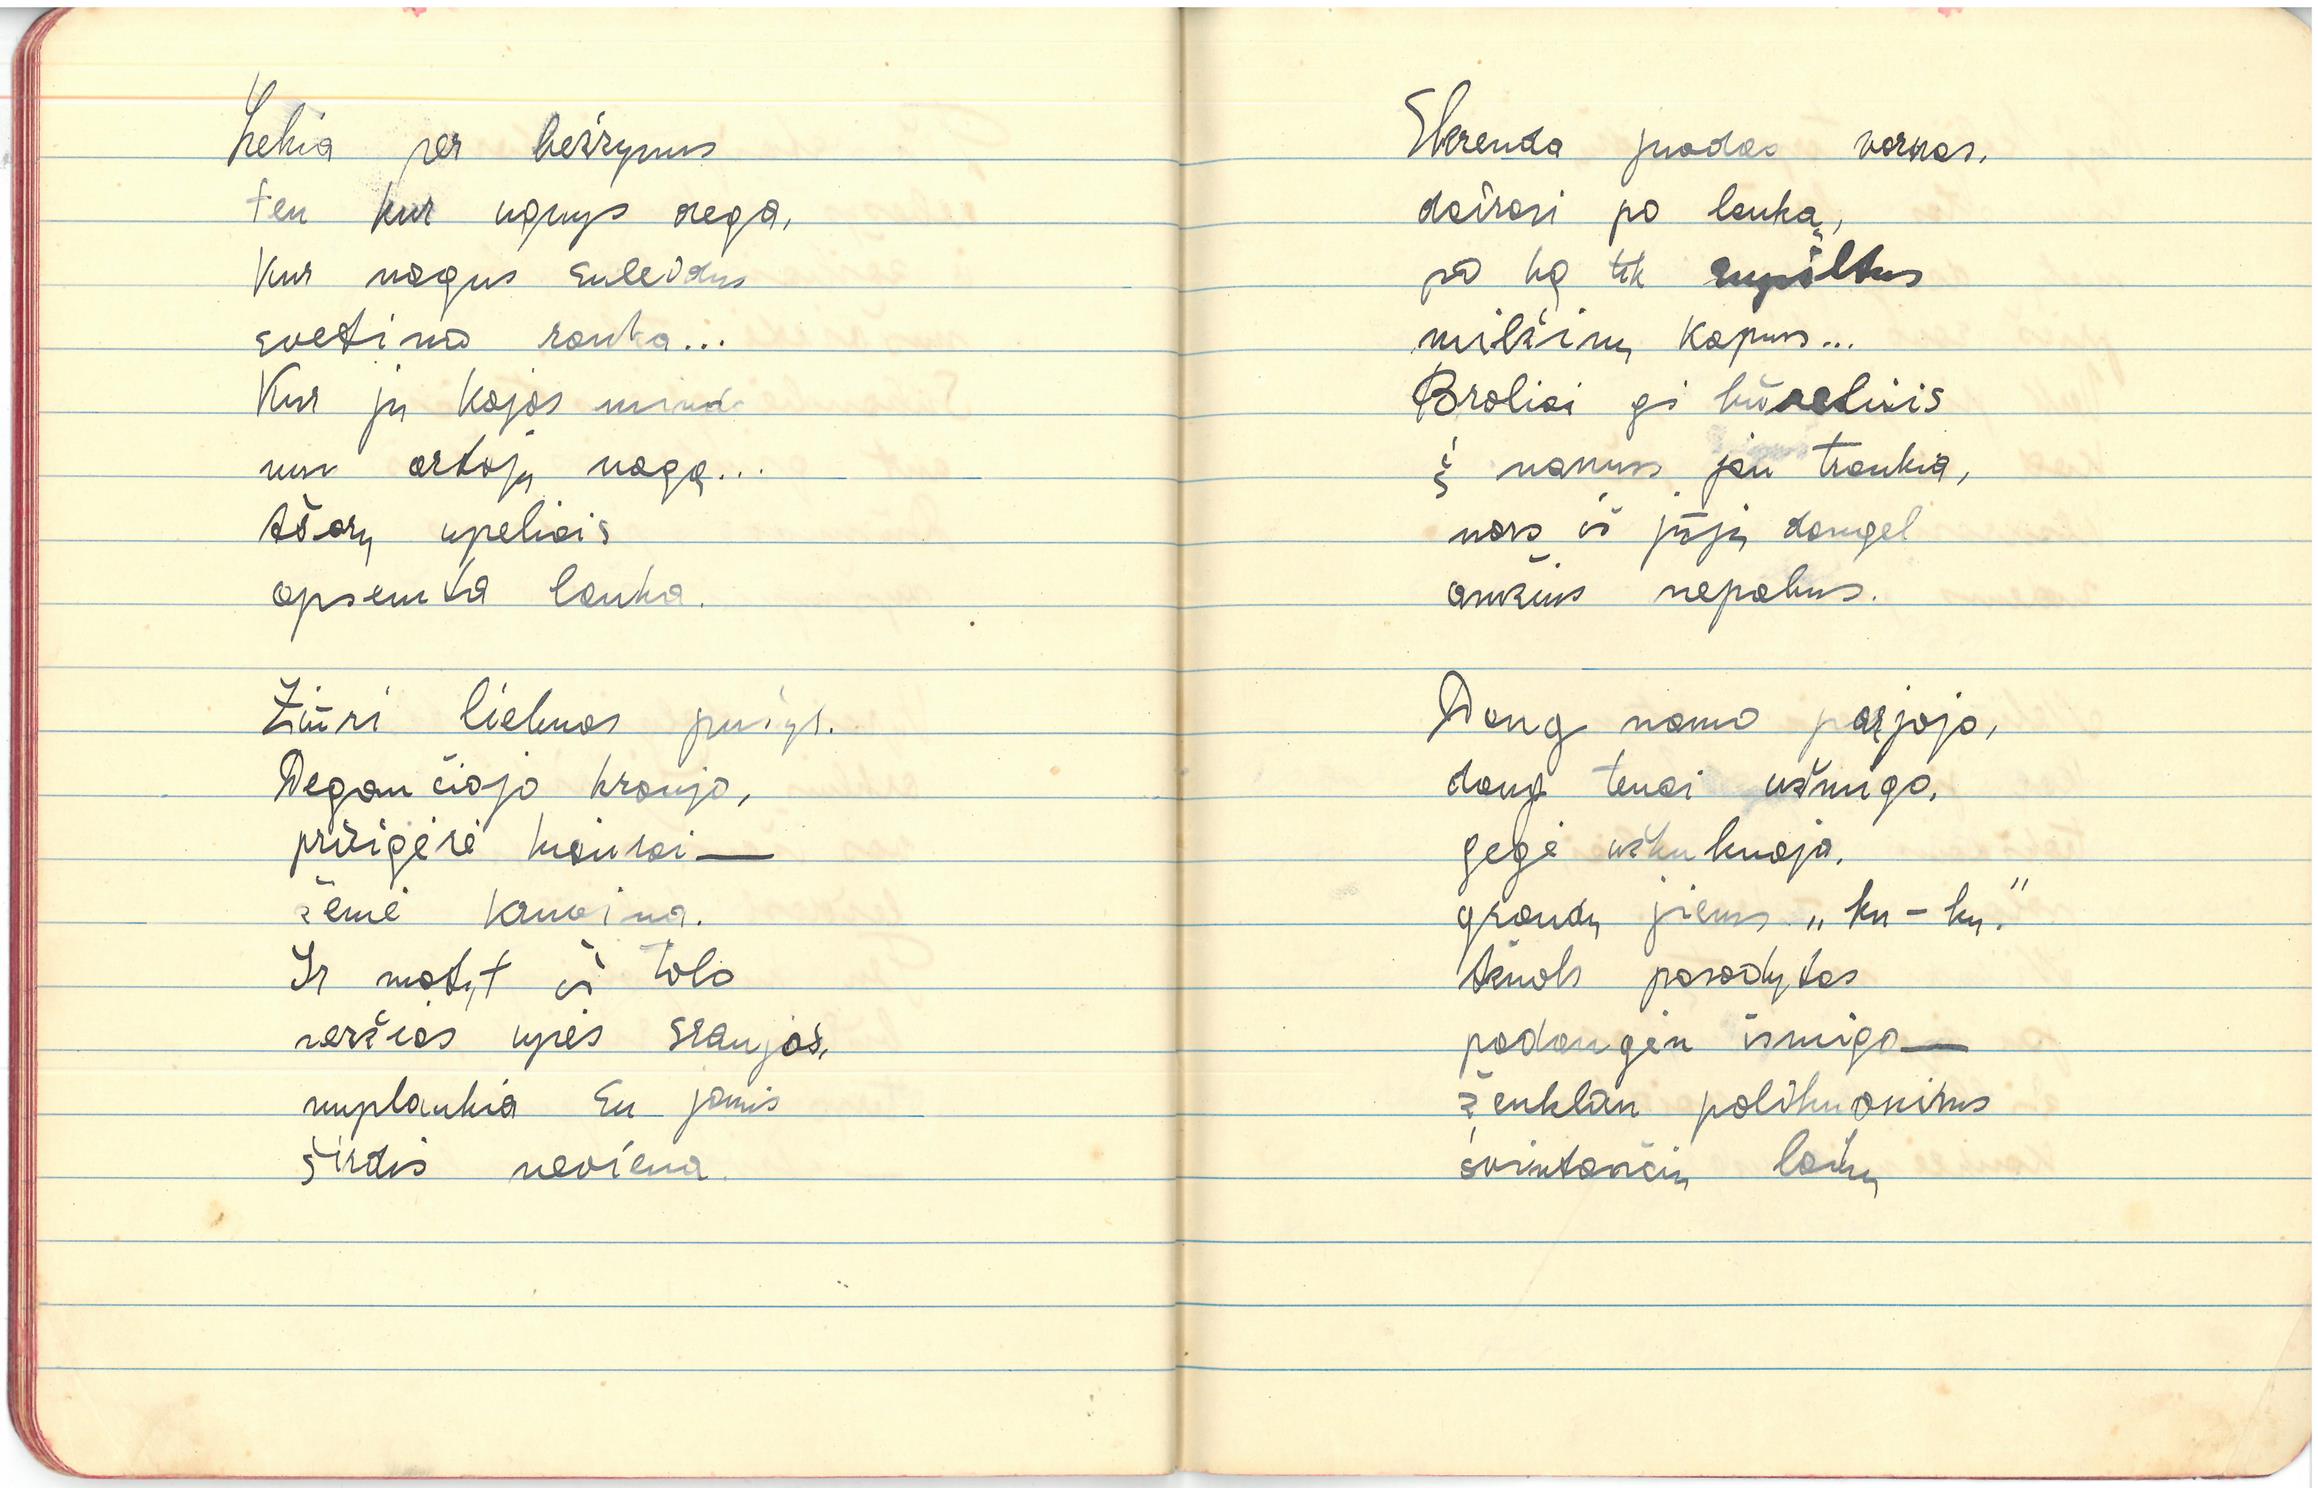 Lekia per beržynus
ten kur ugnys dega,
Kur nagus suleidus
svetima ranka...
Kur jų kojos mindo
mūs artojų nagą...
Ašarų upeliais
apsemta lauka.
Žiūri lieknas pušyt.
Degančiojo kraujo,
prisigėrė kiaurai—
žemė kruvina.
Ir matyt iš tolo
veržias upės sraujos,
nuplaukia su jomis
širdis neviena.
Skrenda juodas varnas,
dairosi po lauką,
po ką tik supiltus
milžinų kapus...
Broliai gi būreliais
į namus jau traukia,
nors iš jūjų daugel
amžius nepabus.
Daug namo parjojo,
daug tenai užmigo,
gegė užkukuoja,
graudų jiems „ku-kų."
Ąžuols pasodytas
padangėn išmigo—
ženklan palikuonims
švintančių laikų